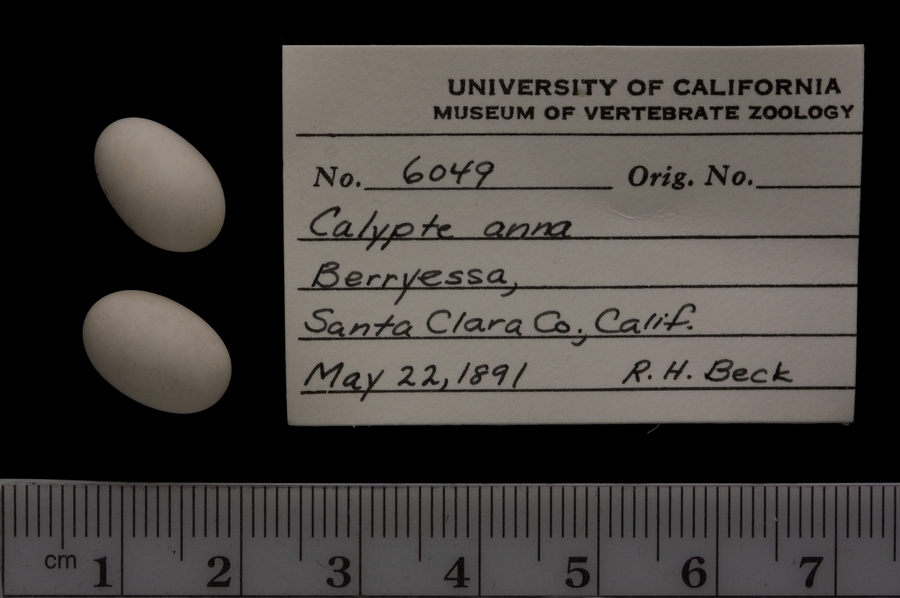 UNIVERSITY OF CALIFORNIA
MUSEUM OF VERTEBRATE ZOOLOGY
No. 6049 Orig. No.
Calypte anna
Berryessa,
Santa Clara Co., Calif.
May 22, 1891 R. H. Beck
cm 1 2 3 4 5 6 7